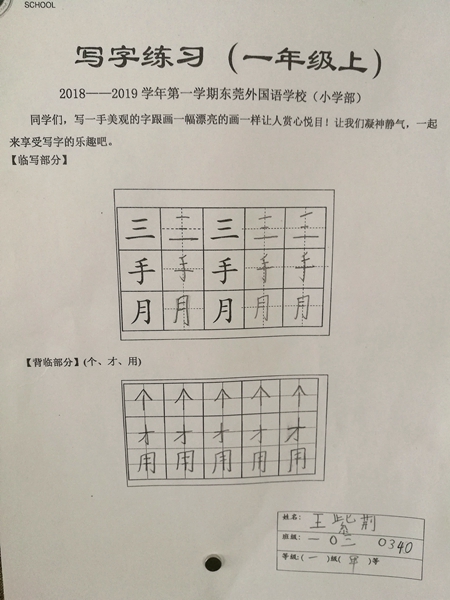 SCHOOL
写字练习（一年级上）
2018——2019 学年第一学期东莞外国语学校（小学部）
同学们，写一手美观的字跟画一幅漂亮的画一样让人赏心悦目！让我们凝神静气，一起
来享受写字的乐趣吧。
【临写部分】
三 三 三 三 三
手 手 手 手 手
月 月 月 月 月
【背临部分】(个、才、用)
个 个 个 个 个
才 才 才 才 才
用 用 用 用 用
姓名： 王紫荆
班级： 一 0 二 0340
等级：(一)级(甲)等